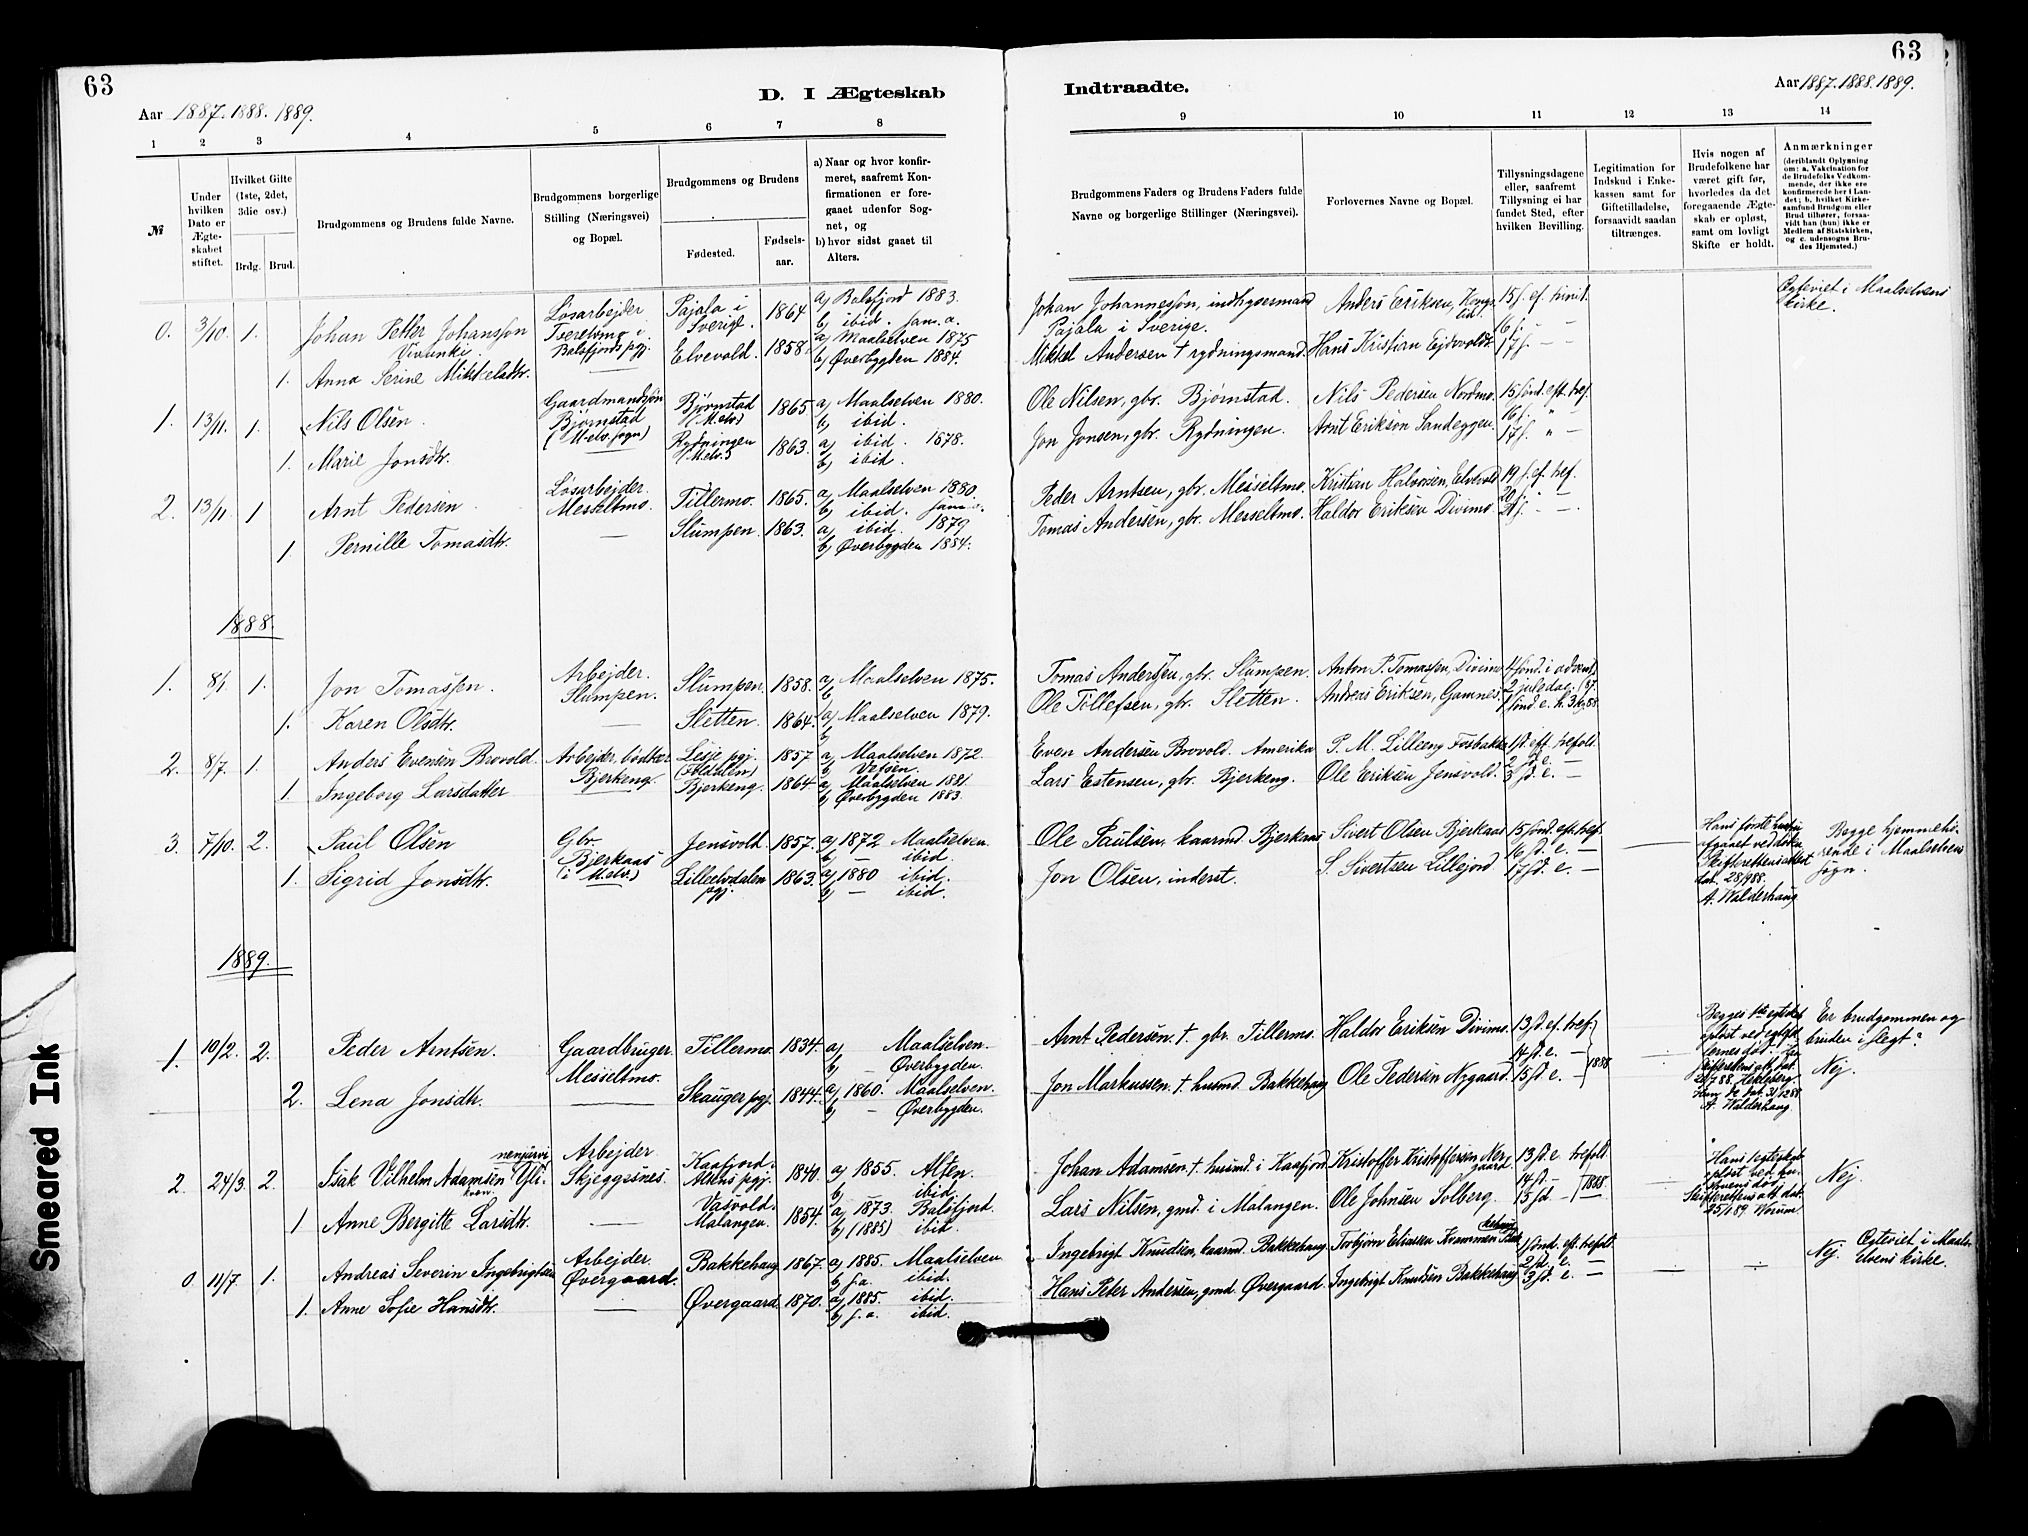 63
63
D. I Ægteskab Indtraadte.
Aar 1887. 1888. 1889.
Aar 1887. 1888. 1889.
1 2 3 4 5 6 7 8 9 10 11 12 13 14
№
Under hvilken Dato er Ægteskabet stiftet.
Hvilket Gifte (1ste, 2det, 3die osv.)
Brdg. Brud.
Brudgommens og Brudens fulde Navne.
Brudgommens borgerlige Stilling (Næringsvei) og Bopæl.
Brudgommens og Brudens
Fødested. Fødselsaar.
a) Naar og hvor konfirmeret, saafremt Konfirmationen er foregaaet udenfor Sognet, og
b) hvor sidst gaaet til Alters.
Brudgommens Faders og Brudens Faders fulde Navne og borgerlige Stillinger (Næringsvei).
Forlovernes Navne og Bopæl.
Tillysningsdagene eller, saafremt Tillysning ei har fundet Sted, efter hvilken Bevilling.
Legitimation for Indskud i Enkekassen samt for Giftetilladelse, forsaavidt saadan tiltrænges.
Hvis nogen af Brudefolkene har været gift før, hvorledes da det foregaaende Ægteskab er opløst, samt om lovligt Skifte er holdt.
Anmærkninger
(deriblandt Oplysning om: a. Vakcination for de Brudefolks Vedkommende, der ikke ere konfirmerede her i Landet; b. hvilket Kirkesamfund Brudgom eller Brud tilhører, forsaavidt han (hun) ikke er Medlem af Statskirken, og c. udensogns Brudes Hjemsted.)
0. 3/10. 1. Johan Petter Johansson Løsarbejder Pajala i Sverige 1864 a) Balsfjord 1883. b) ibid.
Johan Johannesson, Pajala i Sverige. Anders Eriksen, 15 s. ef. trinit.
Ægteviet i Maalselvens kirke.
Balsfjords pgj.
1. Anna Serine Mikkelsdtr. — Elvevold. 1858. a) Maalselven 1875 b) Øverbygden 1884.
Mikkel Andersen † rydningsmand. Hans Kristian 16 s. — — 17 s. — —
1. 13/11. 1. Nils Olsen. Gaardmandssøn Bjørnstad (M.elv. sogn) Bjørnstad (M.elv) 1865 a) Maalselven 1880. b) ibid.
Ole Nilsen, gbr. Bjørnstad. Nils Pedersen Nordmo. 15 sønd. eft. tref.
1. Marie Jonsdtr. Rydningen (M.elv.) 1863. a) ibid. 1878. b) ibid.
Jon Jonsen, gbr. Rydningen. Arnt Erikson Sandeggen. 16 s. " — 17 s. " —
2. 13/11. 1 Arnt Pedersen Løsarbejder. Messeltmo. Tillermo. 1865. a) Maalselven 1880. b) ibid.
Peder Arntsen, gbr. Messeltmo. Kristian Halvorsen, Elvevold 19 s. ef. tref.
1. Pernille Tomasdtr. — Slumpen. 1863. a) ibid. 1879 b) Øverbygden 1884.
Tomas Andersen, gbr. Messeltmo. Haldor Eriksen Divimo. 20 s. — — 21 s. — —
1888.
1. 8/1. 1. Jon Tomassen. Arbejder. Slumpen. Slumpen. 1858. a) Maalselven 1875. b)
Tomas Anderssen, gbr. Slumpen. Anton P. Tomassen, Divimo 4 sønd. i advent
1. Karen Olsdtr. — Sletten. 1864. a) Maalselven 1879. b)
Ole Tollefsen, gbr. Sletten. Andreas Eriksen, Gamnes. 2 juledag
2. 8/7. 1. Anders Evensen Brovold. Arbejder, bødker Bjerkeng. Lesje pgj. 1857 a) Maalselven 1872. b) Vefsen.
Even Andersen Brovold. Amerika P. M. Lilleeng Fosbakke 1 sd. eft. trefold.
1. Ingeborg Larsdatter Bjerkeng. 1864. a) Maalselven 1881. b) Øverbygden 1883.
Lars Estensen, gbr. Bjerkeng. Ole Eriksen Jensvold. 2 sd. e. — 3 sd. e. —
3. 7/10. 2. Paul Olsen Gbr. Bjerkaas (i M.elv) Jensvold. 1857. a) 1872 Maalselven. b) — ibid.
Ole Paulsen, kaarmd. Bjerkaas Sivert Olsen Bjerkaas 15 sønd. eft. tref.
Skifterettens attest dat. 28/9 88. A. Walderhaug.
Begge hjemmehørende i Maalselvens sogn.
1. Sigrid Jonsdtr. Lilleelvdalen pgj. 1863. a) 1880 ibid. b) — ibid.
Jon Olsen, inderst. S. Sivertsen Lillejord. 16 sd. e. — 17 sd. e. —
1889.
1. 10/2. 2. Peder Arntsen. Gaardbruger Messeltmo. Tillermo. 1834. a) Maalselven. b) — Øverbygden.
Arnt Pedersen. † gbr. Tillermo. Haldor Eriksen Divimo. 13 sd. ef. tref.
Er brudgommen og bruden i slegt? Nej.
2. Lena Jonsdtr. — Skauger pgj. 1844. a) 1860. Maalselven. b) — Øverbygden.
Jon Markussen. † husmd. Bakkehaug Ole Pedersen Nygaard. 14 sd. e. — 15 sd. e. — 1888
A. Walderhaug.
2. 24/3. 2. Isak Vilhelm Adamsen Arbejder Skjeggesnes. Kaafjord. Altens pgj. 1840. a) 1855. Alten. b) ibid.
Johan Adamsen. † husmd. i Kaafjord. Kristoffer Kristoffersen Nergaard 13 sd. e. trefolt.
Nej.
1. Anne Bergitte Larsdtr. — Vasvold. Malangen. 1854. a) 1873. Balsfjord. b) (1885) ibid
Lars Nilsen, gmd. i Malangen. Ole Johnsen Solberg. 14 sd. — 15 sd. — 1888
Skifterettens att. dat. 25/1 89.
0. 11/7. 1. Andreas Severin Ingebrigtsen Arbejder. Øvergaard. Bakkehaug 1867. a) 1885. Maalselven b) s.a. ibid.
Ingebrigt Knudsen, kaarmd. Bakkehaug. Torbjørn Eliassen 1 sønd. eft. trefolt.
Nej. Ægteviet i Maalselvens kirke.
1. Anne Sofie Hansdtr. — Øvergaard. 1870. a) 1885. ibid. b) s.a. ibid.
Hans Peter Andersen, gmd. Øvergaard. Ingebrigt Knudsen Bakkehaug 2 sd. e. — 3 sd. e. —
Smeared Ink